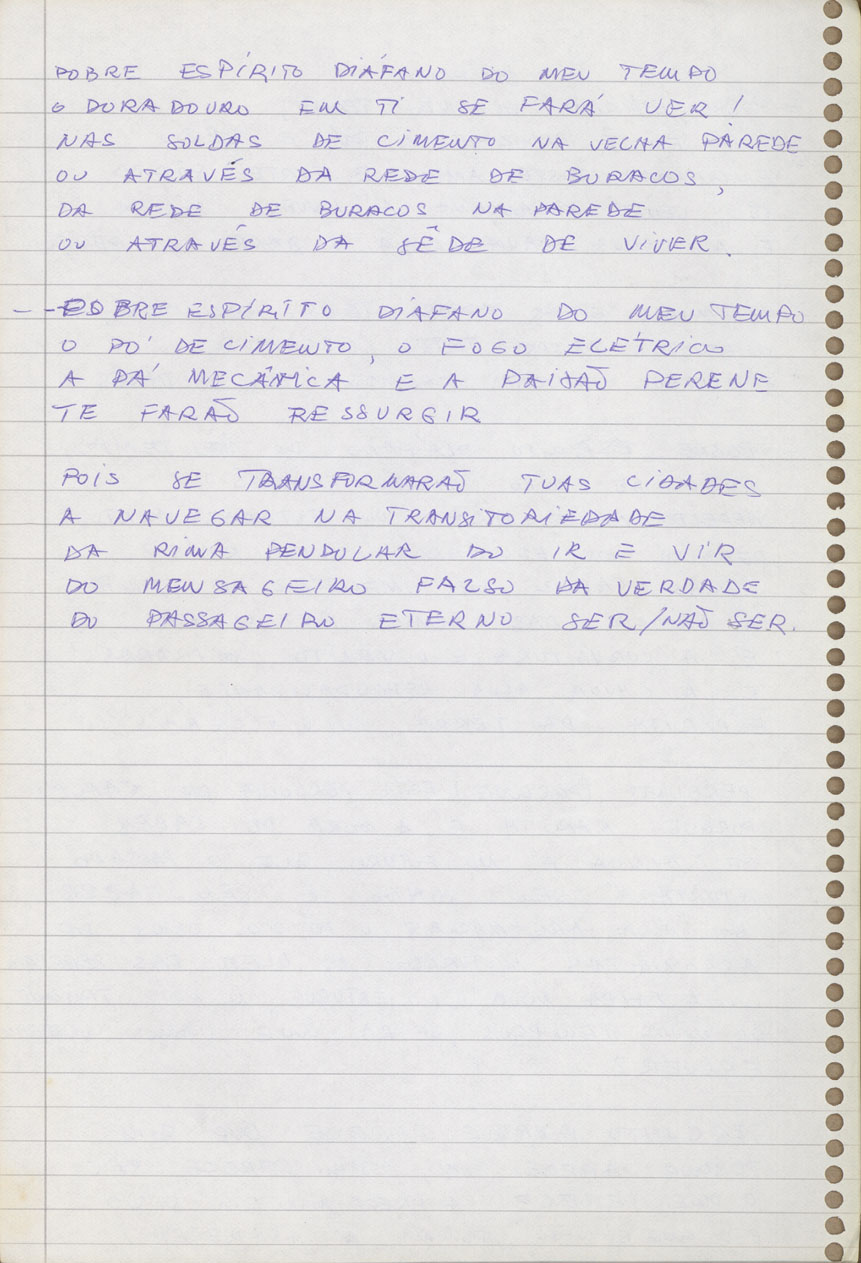 POBRE ESPÍRITO DIÁFANO DO MEU TEMPO
O DURADOURO EM TI SE FARÁ VER!
NAS SOLDAS DE CIMENTO NA VELHA PAREDE
OU ATRAVÉS DA REDE DE BURACOS,
DA REDE DE BURACOS NA PAREDE
OU ATRAVÉS DA SÊDE DE VIVER.
-- POBRE ESPÍRITO DIÁFANO DO MEU TEMPO
O PÓ DE CIMENTO, O FOGO ELÉTRICO
A PÁ MECÂNICA E A PAIXÃO PERENE
TE FARÃO RESSURGIR
POIS SE TRANSFORMARÃO TUAS CIDADES
A NAVEGAR NA TRANSITORIEDADE
DA RIMA PENDULAR DO IR E VIR
DO MENSAGEIRO FALSO DA VERDADE
DO PASSAGEIRO ETERNO SER/NÃO SER.